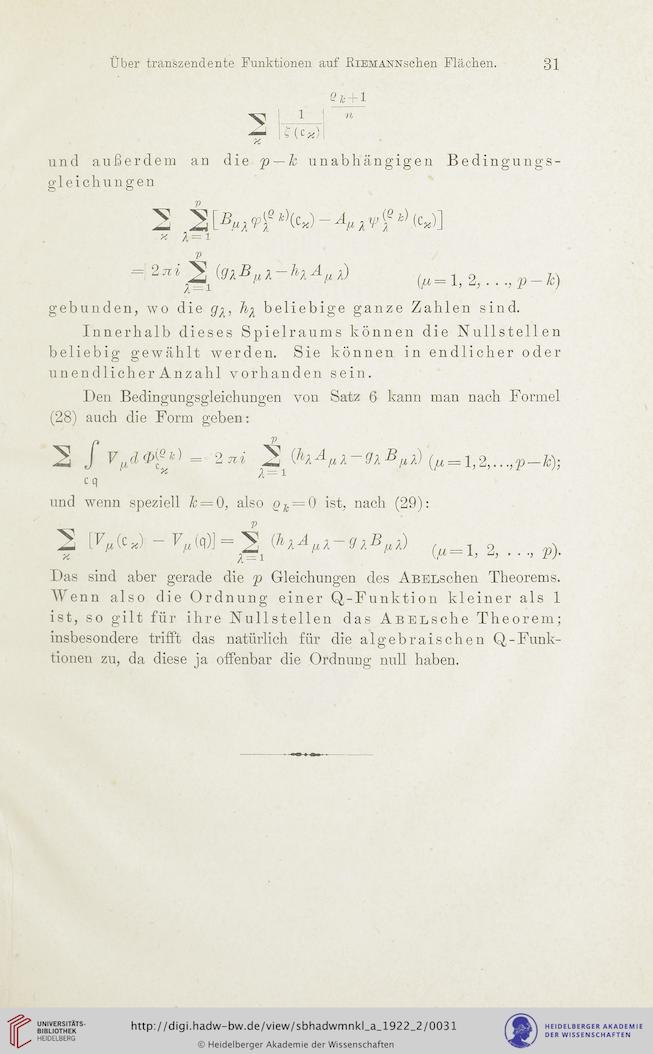 Über transzendente Funktionen auf RIEMANNschen Flächen. 31
∑_ϰ |1/ζ(c_ϰ)|^{(ϱ_k+1)/n}
und außerdem an die p—k unabhängigen Bedingungs-
gleichungen
∑_ϰ ∑_{λ=1}^{p} [B_{μλ} φ_λ^{(ϱ_k)}(c_ϰ) — A_{μλ} ψ_λ^{(ϱ_k)}(c_ϰ)]
= 2πi ∑_{λ=1}^{p} (g_λ B_{μλ} — h_λ A_{μλ}) (μ = 1, 2, . . ., p — k)
gebunden, wo die g_λ, h_λ beliebige ganze Zahlen sind.
Innerhalb dieses Spielraums können die Nullstellen
beliebig gewählt werden. Sie können in endlicher oder
unendlicher Anzahl vorhanden sein.
Den Bedingungsgleichungen von Satz 6 kann man nach Formel
(28) auch die Form geben:
∑ ∫_{c q} V_μ d Φ_{c_ϰ}^{(ϱ_k)} = 2πi ∑_{λ=1}^{p} (h_λ A_{μλ} — g_λ B_{μλ}) (μ = 1,2,...,p—k);
und wenn speziell k = 0, also ϱ_k = 0 ist, nach (29):
∑_ϰ [V_μ(c_ϰ) — V_μ(q)] = ∑_{λ=1}^{p} (h_λ A_{μλ} — g_λ B_{μλ}) (μ = 1, 2, . . ., p).
Das sind aber gerade die p Gleichungen des ABELschen Theorems.
Wenn also die Ordnung einer Q-Funktion kleiner als 1
ist, so gilt für ihre Nullstellen das ABELsche Theorem;
insbesondere trifft das natürlich für die algebraischen Q-Funk-
tionen zu, da diese ja offenbar die Ordnung null haben.
UNIVERSITÄTS-
BIBLIOTHEK
HEIDELBERG
http://digi.hadw-bw.de/view/sbhadwmnkl_a_1922_2/0031
© Heidelberger Akademie der Wissenschaften
HEIDELBERGER AKADEMIE
DER WISSENSCHAFTEN